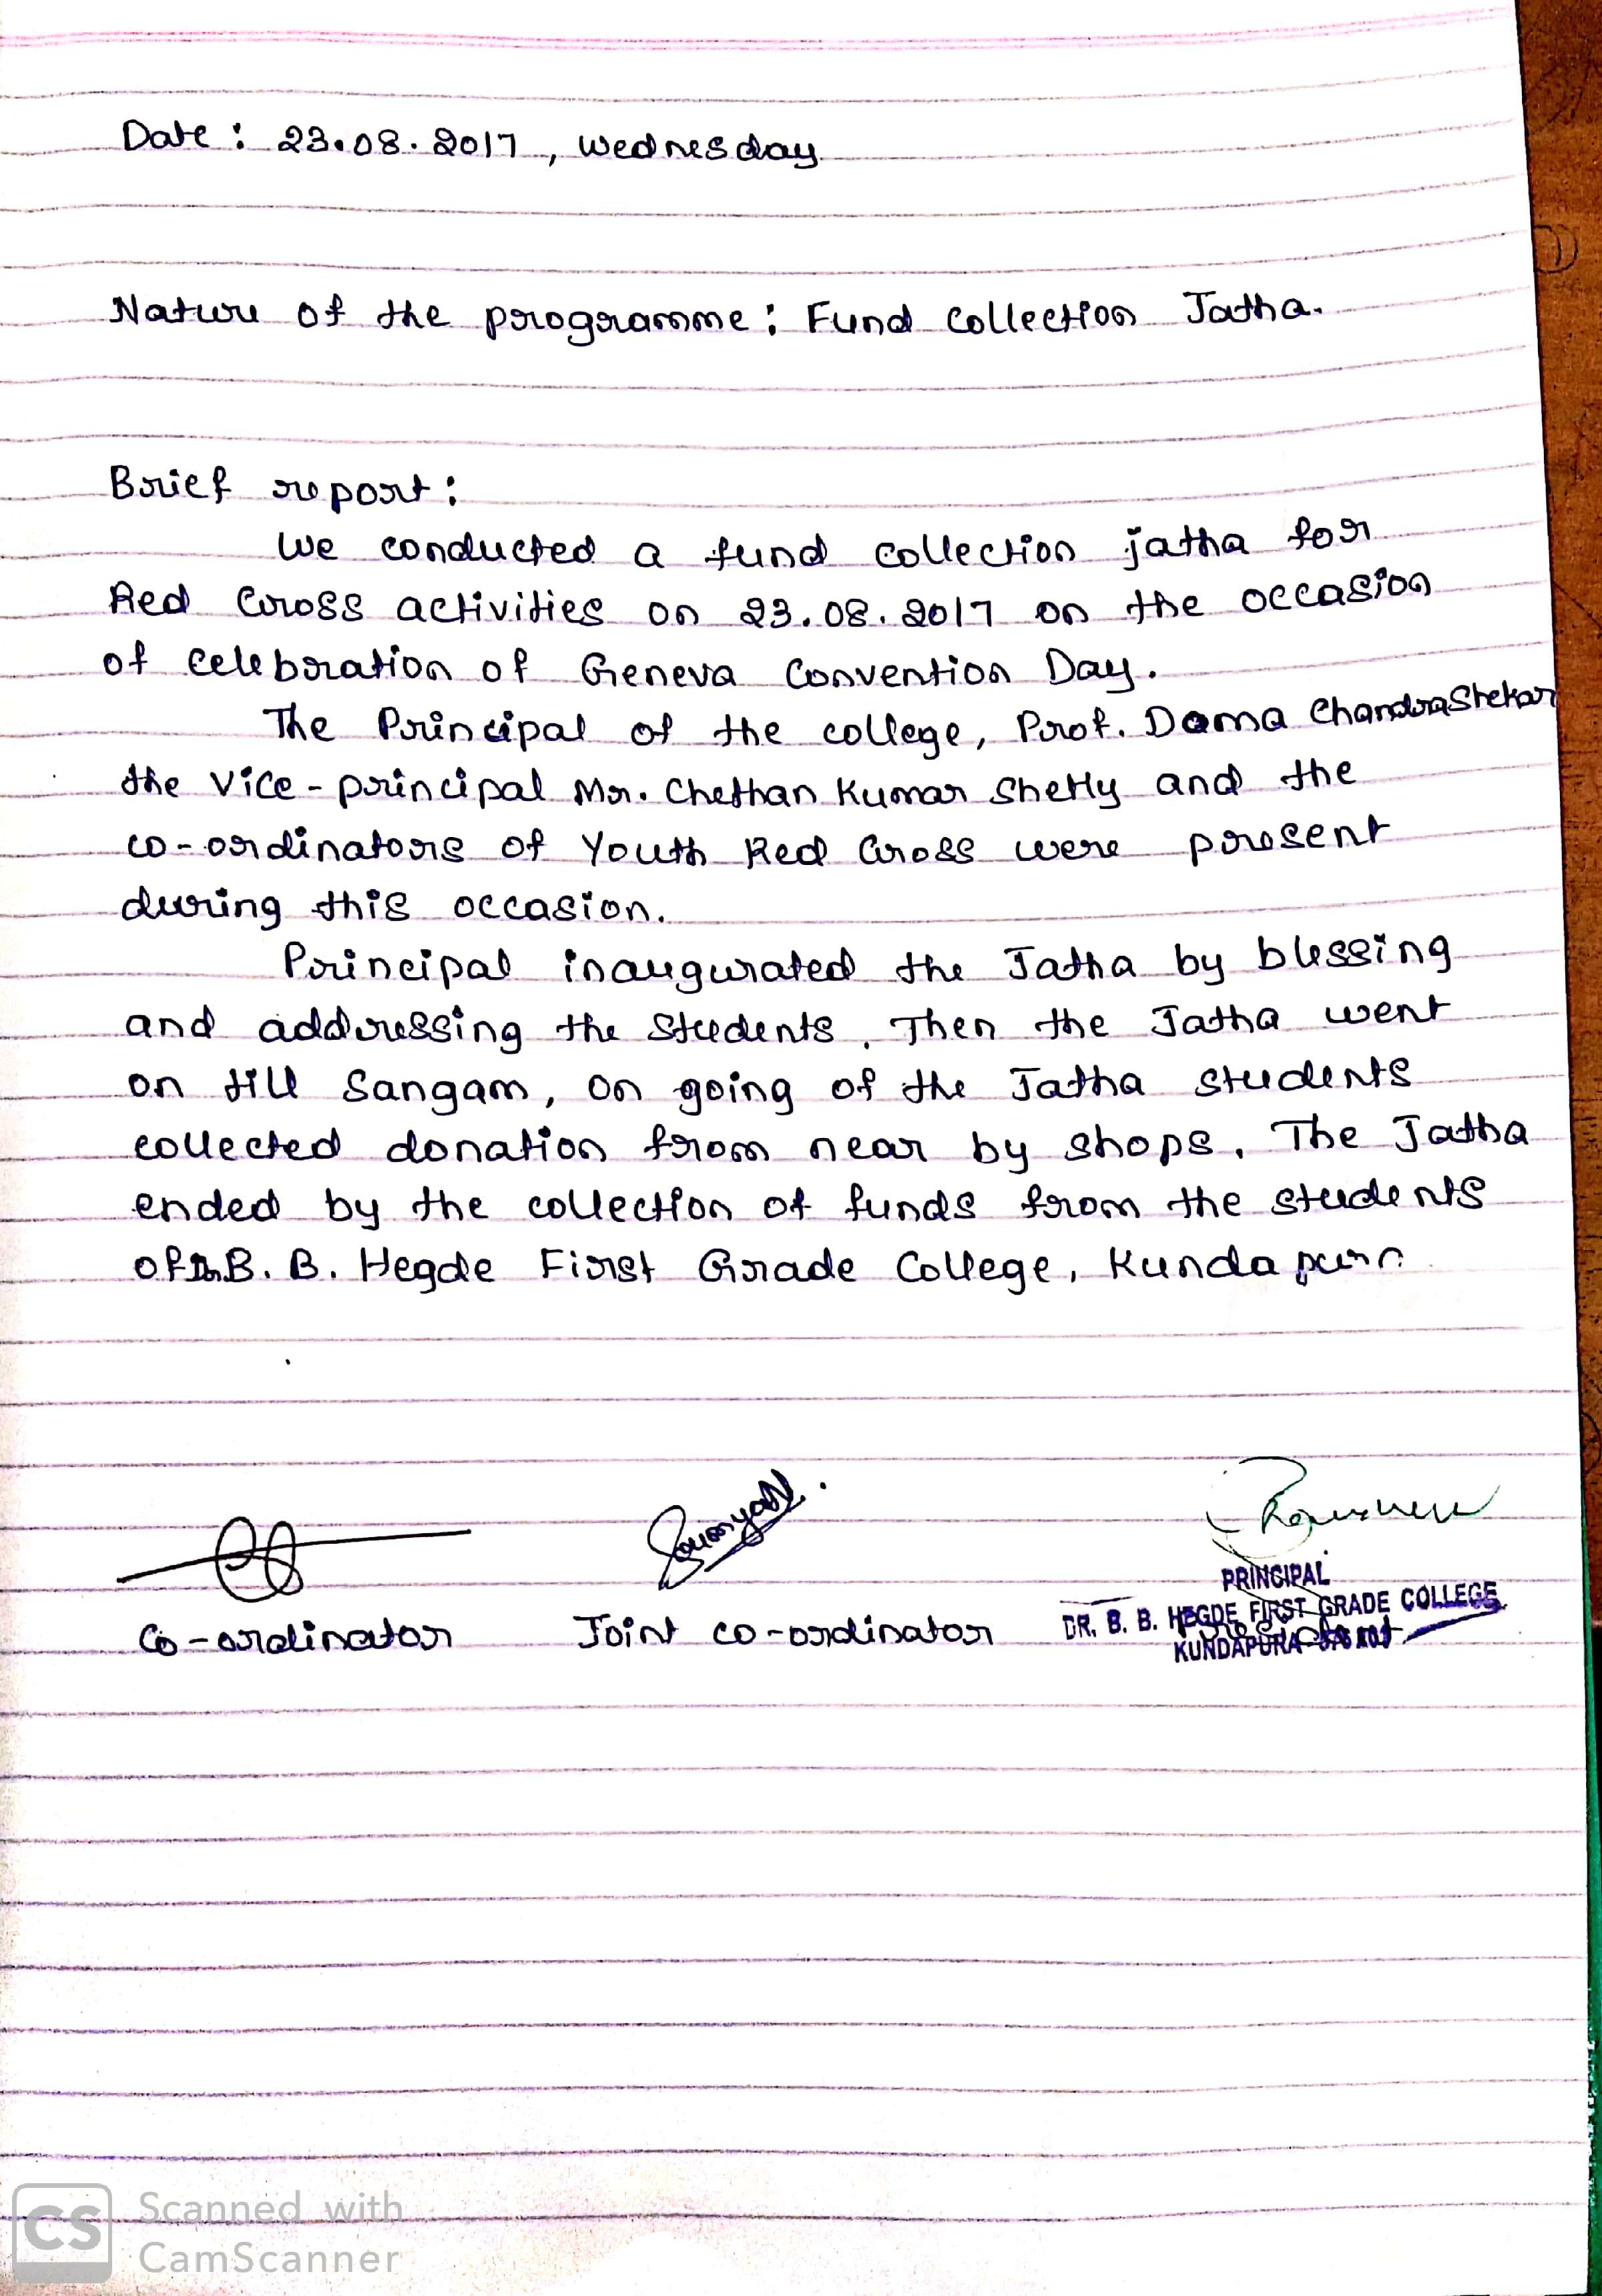 Date : 23.08.2017, Wednesday
Nature of the programme : Fund Collection Jatha.
Brief report :
We conducted a fund collection jatha for
Red Cross activities on 23.08.2017 on the occasion
of celebration of Geneva Convention Day.
The Principal of the college, Prof. Doma ChandraShekar
the Vice-principal Mr. Chethan Kumar Shetty and the
co-ordinators of Youth Red Cross were present
during this occasion.
Principal inaugurated the Jatha by blessing
and addressing the students. Then the Jatha went
on till Sangam, on going of the Jatha students
collected donation from near by shops. The Jatha
ended by the collection of funds from the students
of Dr. B. B. Hegde First Grade College, Kundapura
Sowmya
PRINCIPAL
DR. B. B. HEGDE FIRST GRADE COLLEGE
KUNDAPURA
Co-ordinator Joint co-ordinator
CS Scanned with
CamScanner